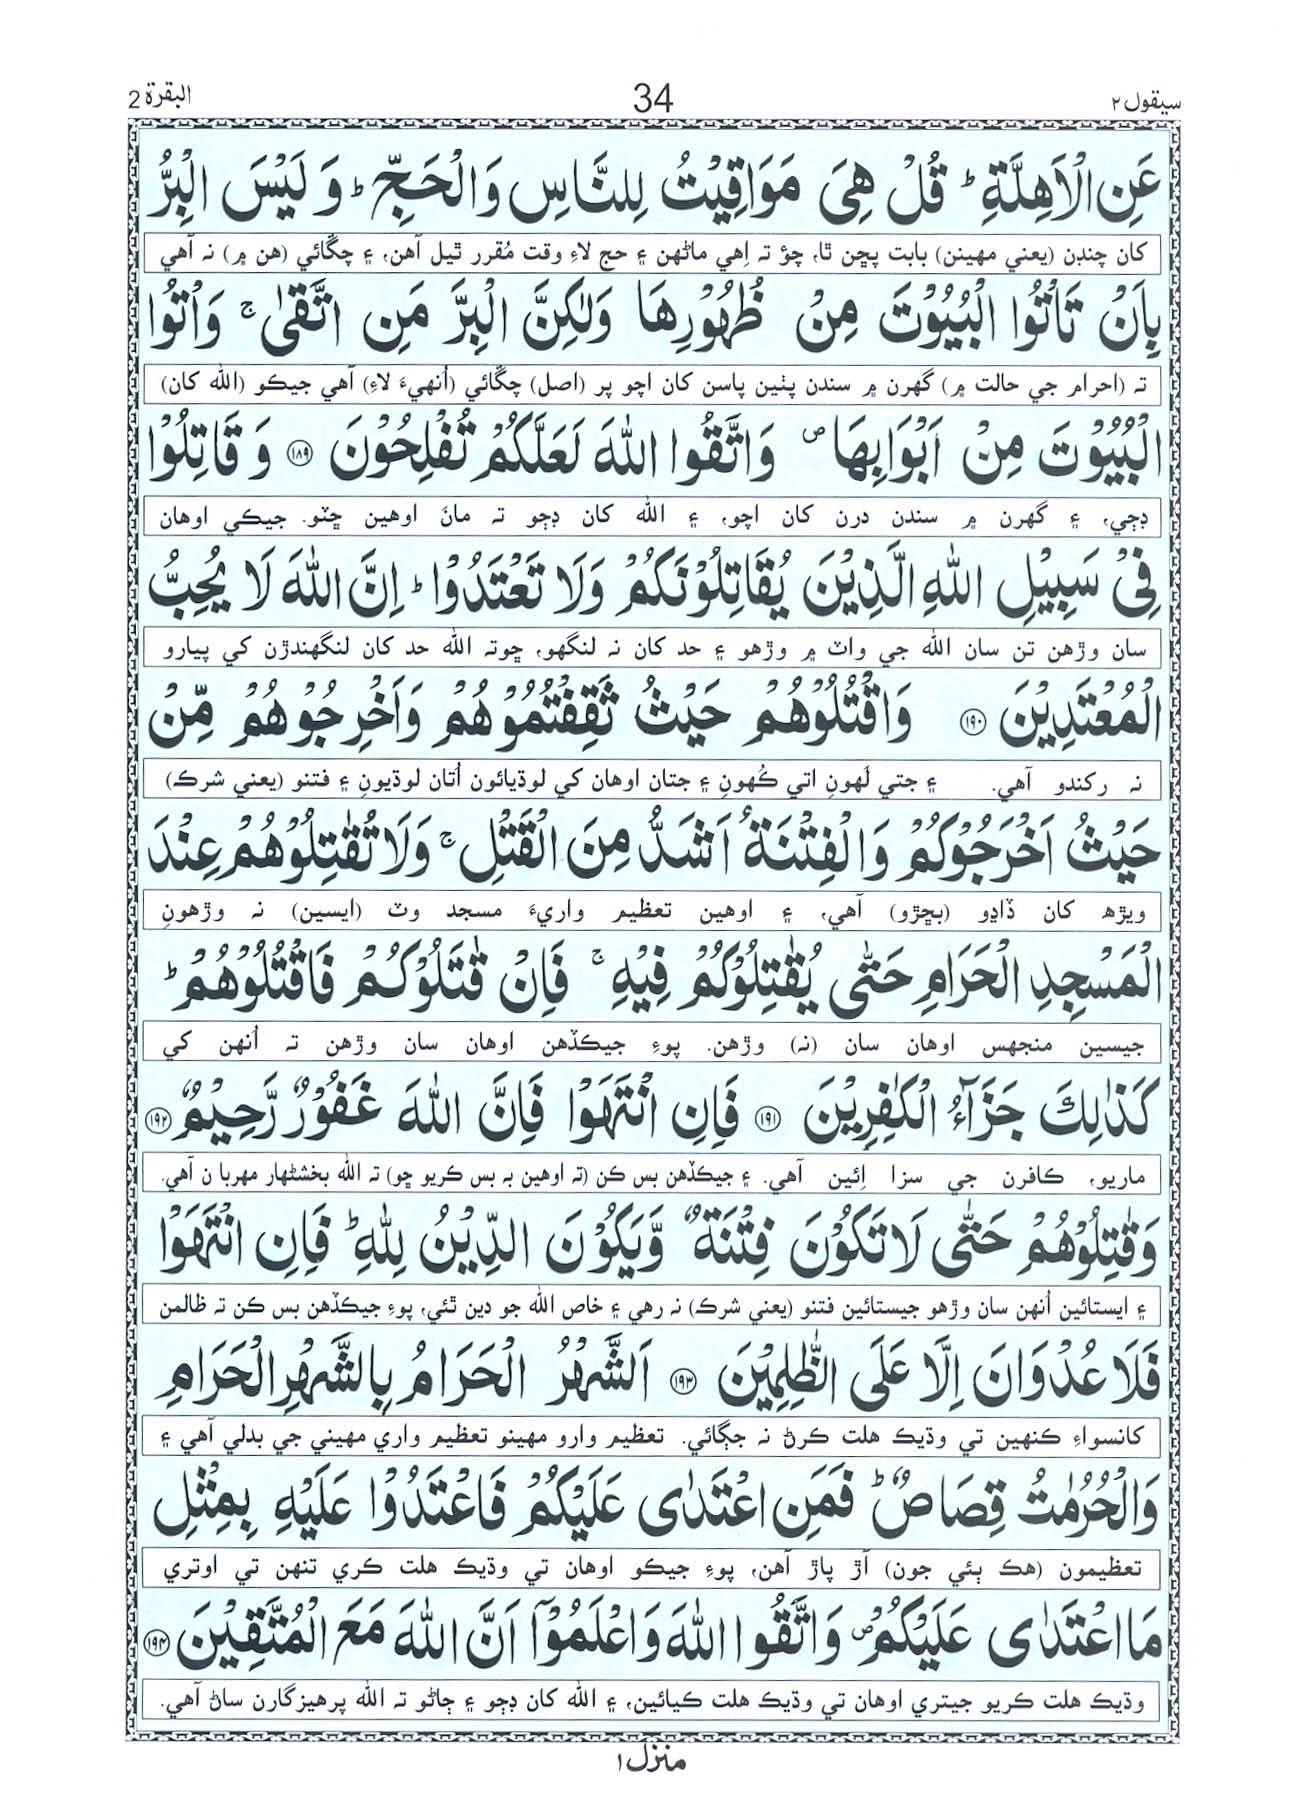 سيقول ٢ 34 البقرة 2
عَنِ الْاَهِلَّةِ ؕ قُلْ هِیَ مَوَاقِيْتُ لِلنَّاسِ وَالْحَجِّ ؕ وَ لَيْسَ الْبِرُّ
کان چنڊن (يعني مهينن) بابت پڇن ٿا، چؤ تہ اِهي ماڻهن ۽ حج لاءِ وقت مُقرر ٿيل آهن، ۽ چڱائي (هن ۾) نہ آهي
بِاَنْ تَاْتُوا الْبُيُوْتَ مِنْ ظُهُوْرِهَا وَلٰكِنَّ الْبِرَّ مَنِ اتَّقٰی ۚ وَاْتُوا
تہ (احرام جي حالت ۾) گهرن ۾ سندن پٺين پاسن کان اچو پر (اصل) چڱائي (اُنهيءَ لاءِ) آهي جيڪو (الله کان)
الْبُيُوْتَ مِنْ اَبْوَابِهَا ۪ وَاتَّقُوا اللهَ لَعَلَّكُمْ تُفْلِحُوْنَ ﴿۱۸۹﴾ وَ قَاتِلُوْا
ڊڄي، ۽ گهرن ۾ سندن درن کان اچو، ۽ الله کان ڊڄو تہ مانَ اوهين ڇٽو. جيڪي اوهان
فِیْ سَبِيْلِ اللهِ الَّذِيْنَ يُقَاتِلُوْنَكُمْ وَلَا تَعْتَدُوْا ؕ اِنَّ اللهَ لَا يُحِبُّ
سان وڙهن تن سان الله جي واٽ ۾ وڙهو ۽ حد کان نہ لنگهو، ڇوتہ الله حد کان لنگهندڙن کي پيارو
الْمُعْتَدِيْنَ ﴿۱۹۰﴾ وَاقْتُلُوْهُمْ حَيْثُ ثَقِفْتُمُوْهُمْ وَاَخْرِجُوْهُمْ مِّنْ
نہ رکندو آهي. ۽ جتي لَهونِ اتي ڪُهونِ ۽ جتان اوهان کي لوڌيائون اُتان لوڌيونِ ۽ فتنو (يعني شرڪ)
حَيْثُ اَخْرَجُوْكُمْ وَالْفِتْنَةُ اَشَدُّ مِنَ الْقَتْلِ ۚ وَلَا تُقٰتِلُوْهُمْ عِنْدَ
ويڙهہ کان ڏاڍو (بڇڙو) آهي، ۽ اوهين تعظيم واريءَ مسجد وٽ (ايسين) نہ وڙهونِ
الْمَسْجِدِ الْحَرَامِ حَتّٰی يُقٰتِلُوْكُمْ فِيْهِ ۚ فَاِنْ قٰتَلُوْكُمْ فَاقْتُلُوْهُمْ ؕ
جيسين منجهس اوهان سان (نہ) وڙهن. پوءِ جيڪڏهن اوهان سان وڙهن تہ اُنهن کي
كَذٰلِكَ جَزَآءُ الْكٰفِرِيْنَ ﴿۱۹۱﴾ فَاِنِ انْتَهَوْا فَاِنَّ اللهَ غَفُوْرٌ رَّحِيْمٌ ﴿۱۹۲﴾
ماريو، ڪافرن جي سزا اِئين آهي. ۽ جيڪڏهن بس ڪن (تہ اوهين بہ بس ڪريو ڇو) تہ الله بخشڻهار مهربان آهي.
وَقٰتِلُوْهُمْ حَتّٰی لَا تَكُوْنَ فِتْنَةٌ وَّيَكُوْنَ الدِّيْنُ لِلّٰهِ ؕ فَاِنِ انْتَهَوْا
۽ ايستائين اُنهن سان وڙهو جيستائين فتنو (يعني شرڪ) نہ رهي ۽ خاص الله جو دين ٿئي، پوءِ جيڪڏهن بس ڪن تہ ظالمن
فَلَا عُدْوَانَ اِلَّا عَلَی الظّٰلِمِيْنَ ﴿۱۹۳﴾ اَلشَّهْرُ الْحَرَامُ بِالشَّهْرِ الْحَرَامِ
کانسواءِ ڪنهين تي وڌيڪ هلت ڪرڻ نہ جڳائي. تعظيم وارو مهينو تعظيم واري مهيني جي بدلي آهي ۽
وَالْحُرُمٰتُ قِصَاصٌ ؕ فَمَنِ اعْتَدٰی عَلَيْكُمْ فَاعْتَدُوْا عَلَيْهِ بِمِثْلِ
تعظيمون (هڪ ٻئي جون) اَڙ پاڙ آهن، پوءِ جيڪو اوهان تي وڌيڪ هلت ڪري تنهن تي اوتري
مَا اعْتَدٰی عَلَيْكُمْ ۪ وَاتَّقُوا اللهَ وَاعْلَمُوْۤا اَنَّ اللهَ مَعَ الْمُتَّقِيْنَ ﴿۱۹۴﴾
وڌيڪ هلت ڪريو جيتري اوهان تي وڌيڪ هلت ڪيائين، ۽ الله کان ڊڄو ۽ ڄاڻو تہ الله پرهيزگارن ساڻ آهي.
منزل ۱